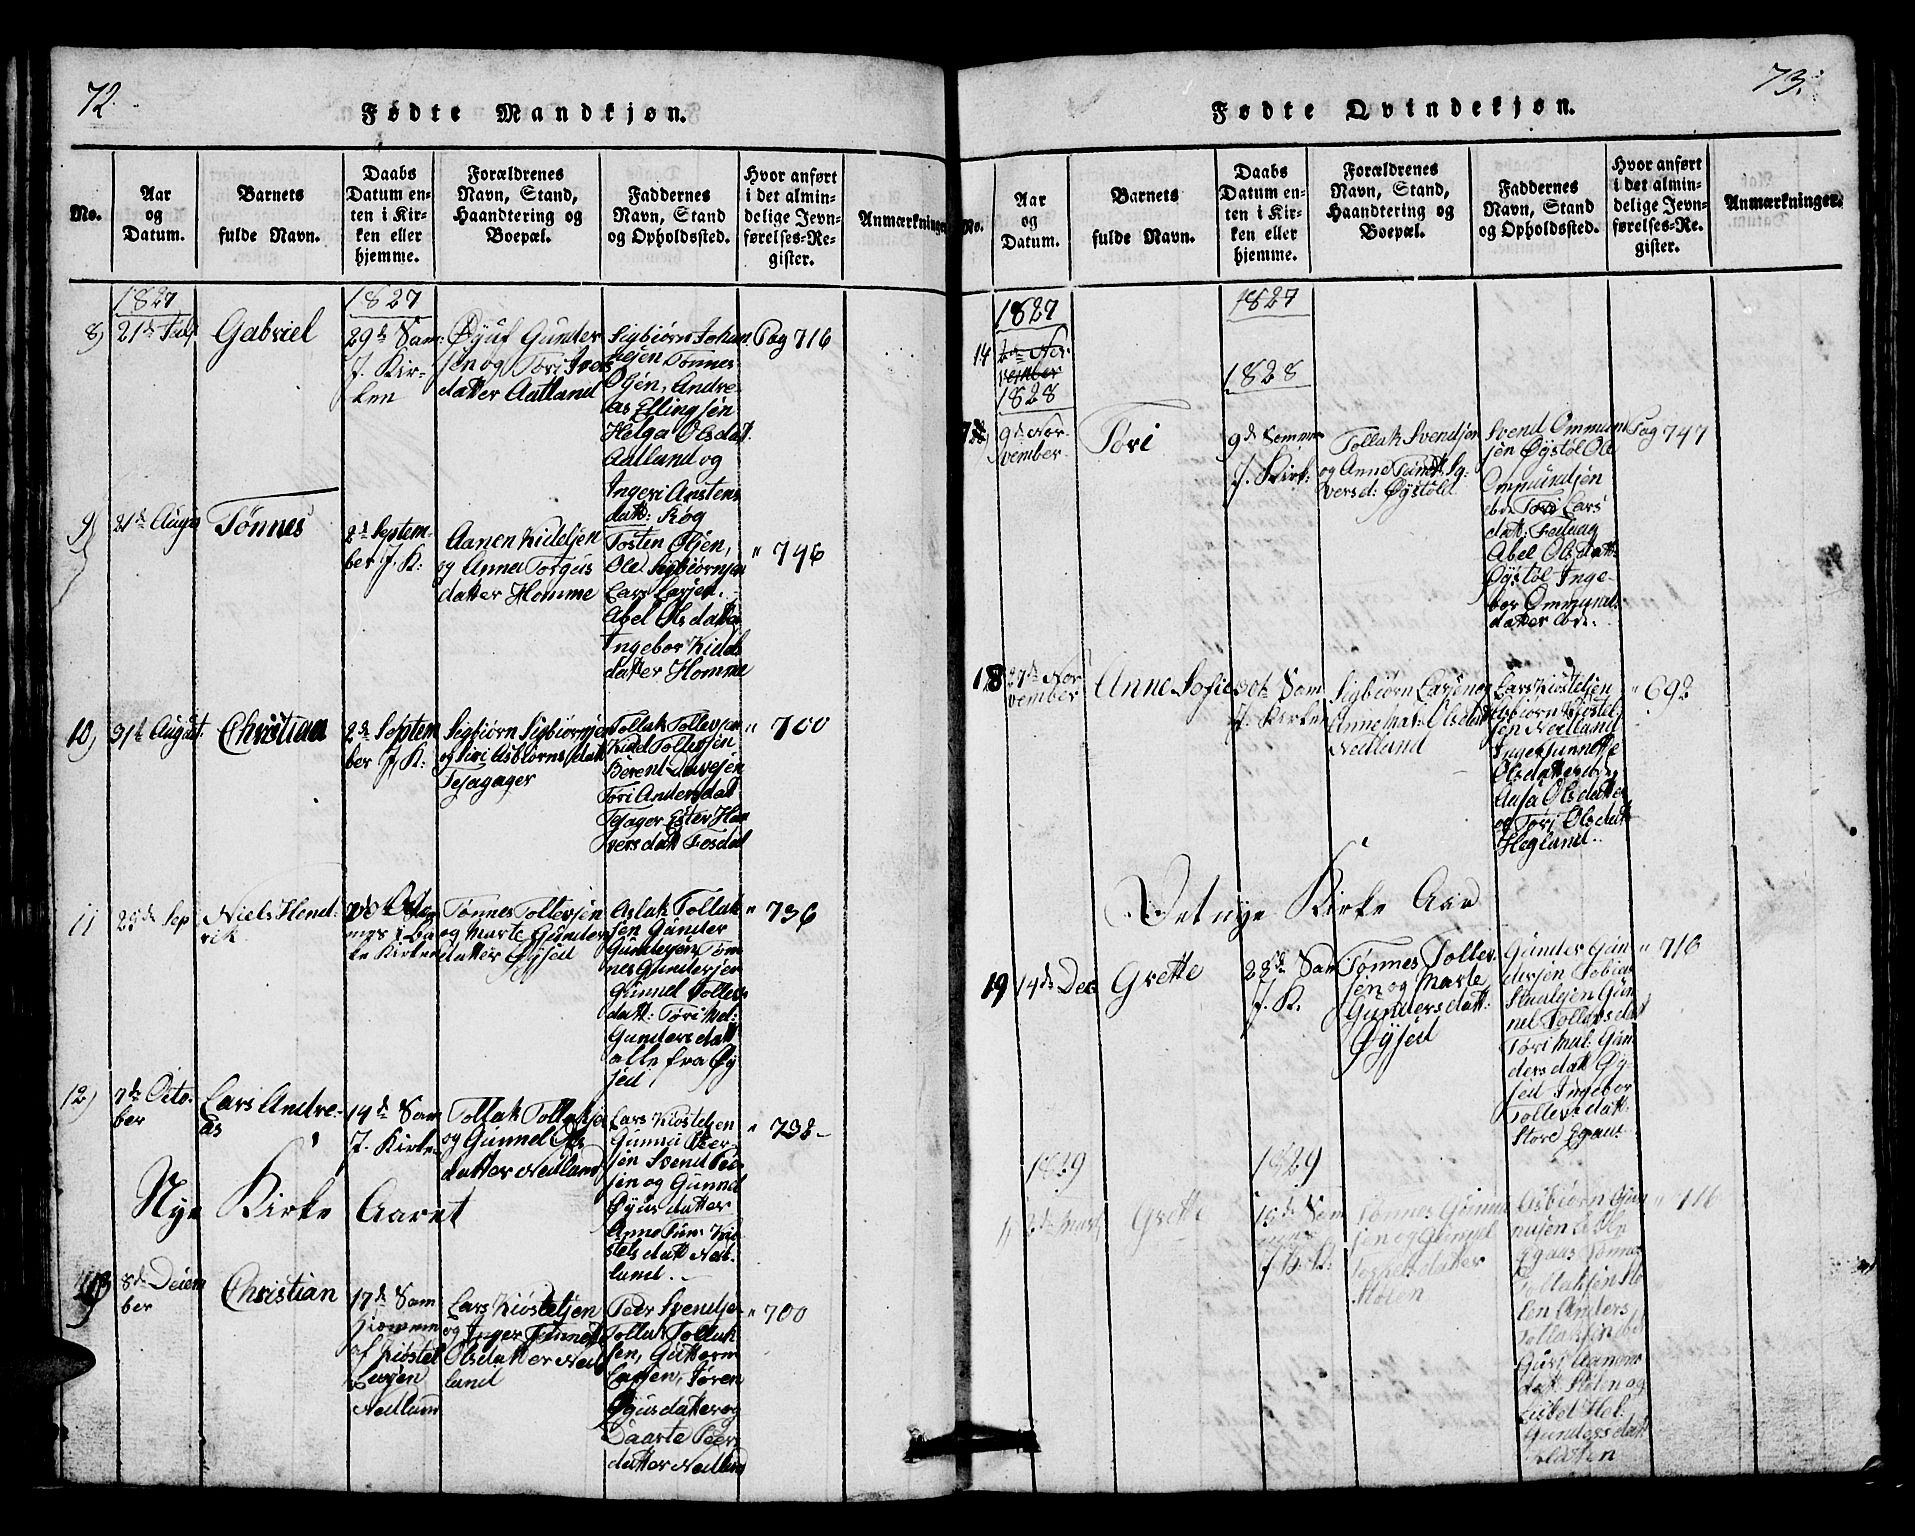 72.
Fødte Mandkjøn.
No.
Aar
og
Datum.
Barnets
fulde Navn.
Daabs
Datum en-
ten i Kir-
ken eller
hjemme.
Forældrenes
Navn, Stand,
Haandtering og
Boepæl.
Faddernes
Navn, Stand
og Opholdssted.
Hvor anført
i det almin-
delige Jevn-
førelses-Re-
gister.
Anmærkninger
1827
1827
8)
21de
Gabriel
29de Sam:
J. Kir-
ken
Gunder
sen og Tori
datter Aatland
Sigbiørn Johan
nesen Tønnes
Andre-
as Ellingsen
Helga Olsdat:
Aatland og
Ingeri
datt:
Pag 716
9)
21de Aug
Tønnes
2d Septem-
ber J. K:
Aanen Kidelsen
og Anna Torgus
datter Homme
Tosten Olsen,
Ole Sigbiørnsen
Lars Larsen
Abel Olsdatter
Ingebor Kidels
datter Homme
" 746
10)
31te August
Christian
2d Septem
ber J. K:
Sigbiørn Sigbiørnsen
og Siri Asbiørnsdatt
Tejagager
Tollak Tollevsen
Kidel Tollevsen
Berent
Tori Andersdat
Ester
datt Fosdal
" 700
11
Niels Hend-
rik
Kirken
Tønnes Tollevsen
og Marte Gunders
datter Øysed
Aslak Tollak
sen Gunder
Gundersen Tøn
nes Gundersen
Gunnel Tollevs
datt: Tori Mal:
Gundersdatt
alle fra Øy
sed
" 736
12)
7de Octo-
ber
Lars Andre-
as
14de Sam
J. Kirken
Tollak Tollaksen
og Gunnel Ols
datter Nedland
Lars Kiøstelsen
Gunnu Peer-
sen Svend Peer
sen og Gunnel
Øyus datter
datt Ned-
land.
" 738
Nye Kirke Aaret
8de Decem
ber
Christian
17de Sam
Hiemme
af Kiøstel
Larsen
Nedland
Lars Kiøstelsen
og Inger
Olsdatter Ned
land
Peer Svendsen
Tollak Tollak
sen, Guttorm
Larsen, Søren
Øyusdatter og
Daarte Peers
datter Nedland
" 700
73.
Fødte Qvindekjøn.
No.
Aar
og
Datum.
Barnets
fulde Navn.
Daabs
Datum en-
ten i Kir-
ken eller
hjemme.
Forældrenes
Navn, Stand,
Haandtering og
Boepæl.
Faddernes
Navn, Stand
og Opholdssted.
Hvor anført
i det almin-
delige Jevn-
førelses-Re-
gister.
Anmærkninger.
1827
1827
14
1828
1828
9de Nov-
vember
Tori
9de Samme
J. Kirk:
Tollak Svendsen
og Anne
Øystøld
Svend Ommun
sen Øystøl Ole
Ommundsen
ibd. Tori Lars
datt:
Abel Olsdatt:
Øystøl Inge-
bor Ommunds
datter ibd:
Pag 747
18
27de Nov
vember
Anne Sofie
30te Sam
J. Kirken
Sigbiørn Larsen og
Anne Mar: Olsdatt
Nedland
Lars Kiøstelsen
Sigbiørn Kiøstel
sen Nedland
Inger
Olsdatter ibd
Aasa Olsdatter
og Tori Olsdatt
Hegland.
" 692
Det nye Kirke Aar
19
14de Dec
Grette
28de Sam
J. K.
Tønnes Tollev
sen og Marte
Gundersdatt:
Øysed
Gunder Gun
dersen Tobias
Gun
nel Tollevsdatt
Tori Mal: Gun
dersdatt Øy-
sed Ingebor
Tollevsdatt:
Store Egaas
" 716
1829
1829
1,
2de
Grette
15de Sam
J. K.
Tønnes Gunnu
sen og Gunnel
datter
Stølen
Asbiørn Gun
nusen
Egaas Tønnes
Tollaksen Stø
len Anders
Tollaksen ibd
Guri Aanons
datt Stølen og
Lisbet Hel:
Gundersdatt
Slaten
" 716